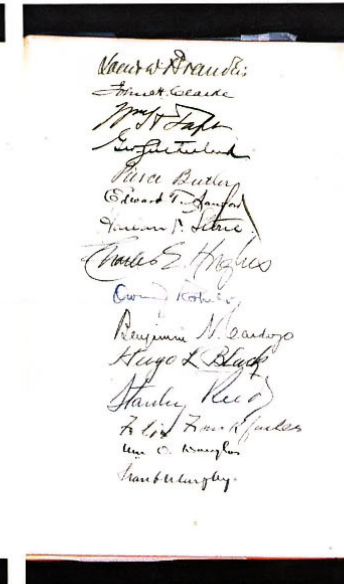 Louis D. Brandeis
John H. Clarke
Wm H Taft
Geo Sutherland
Pierce Butler
Edward T. Sanford
Harlan F. Stone
Charles E Hughes
Owen J Roberts
Benjamin N. Cardozo
Hugo L Black
Stanley Reed
Felix Frankfurter
Wm O. Douglas
Frank Murphy.